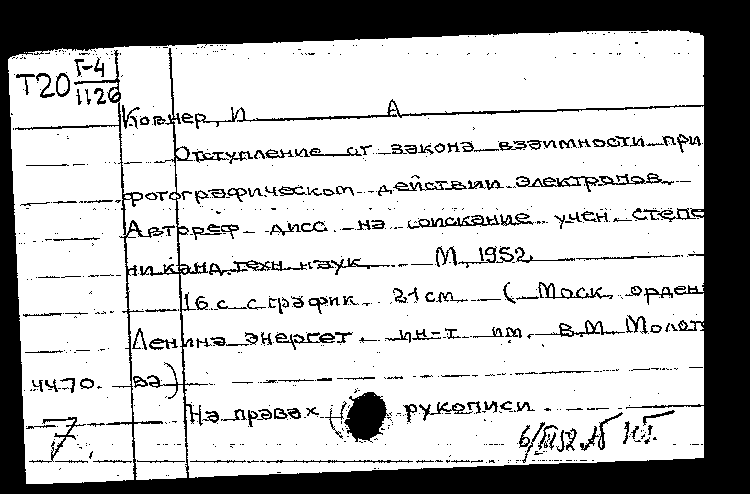 Т20 Г-4
1126
Ковнер, И А
Отступление от закона взаимности при
фотографическом действии электронов.
Автореф дисс на соискание учен. степе
ни канд. техн. наук. М, 1952.
16 с с график. 21 см (Моск. орден
Ленина энергет. ин-т им. В.М. Молото
4470. ва)
На правах рукописи.
6/III 52